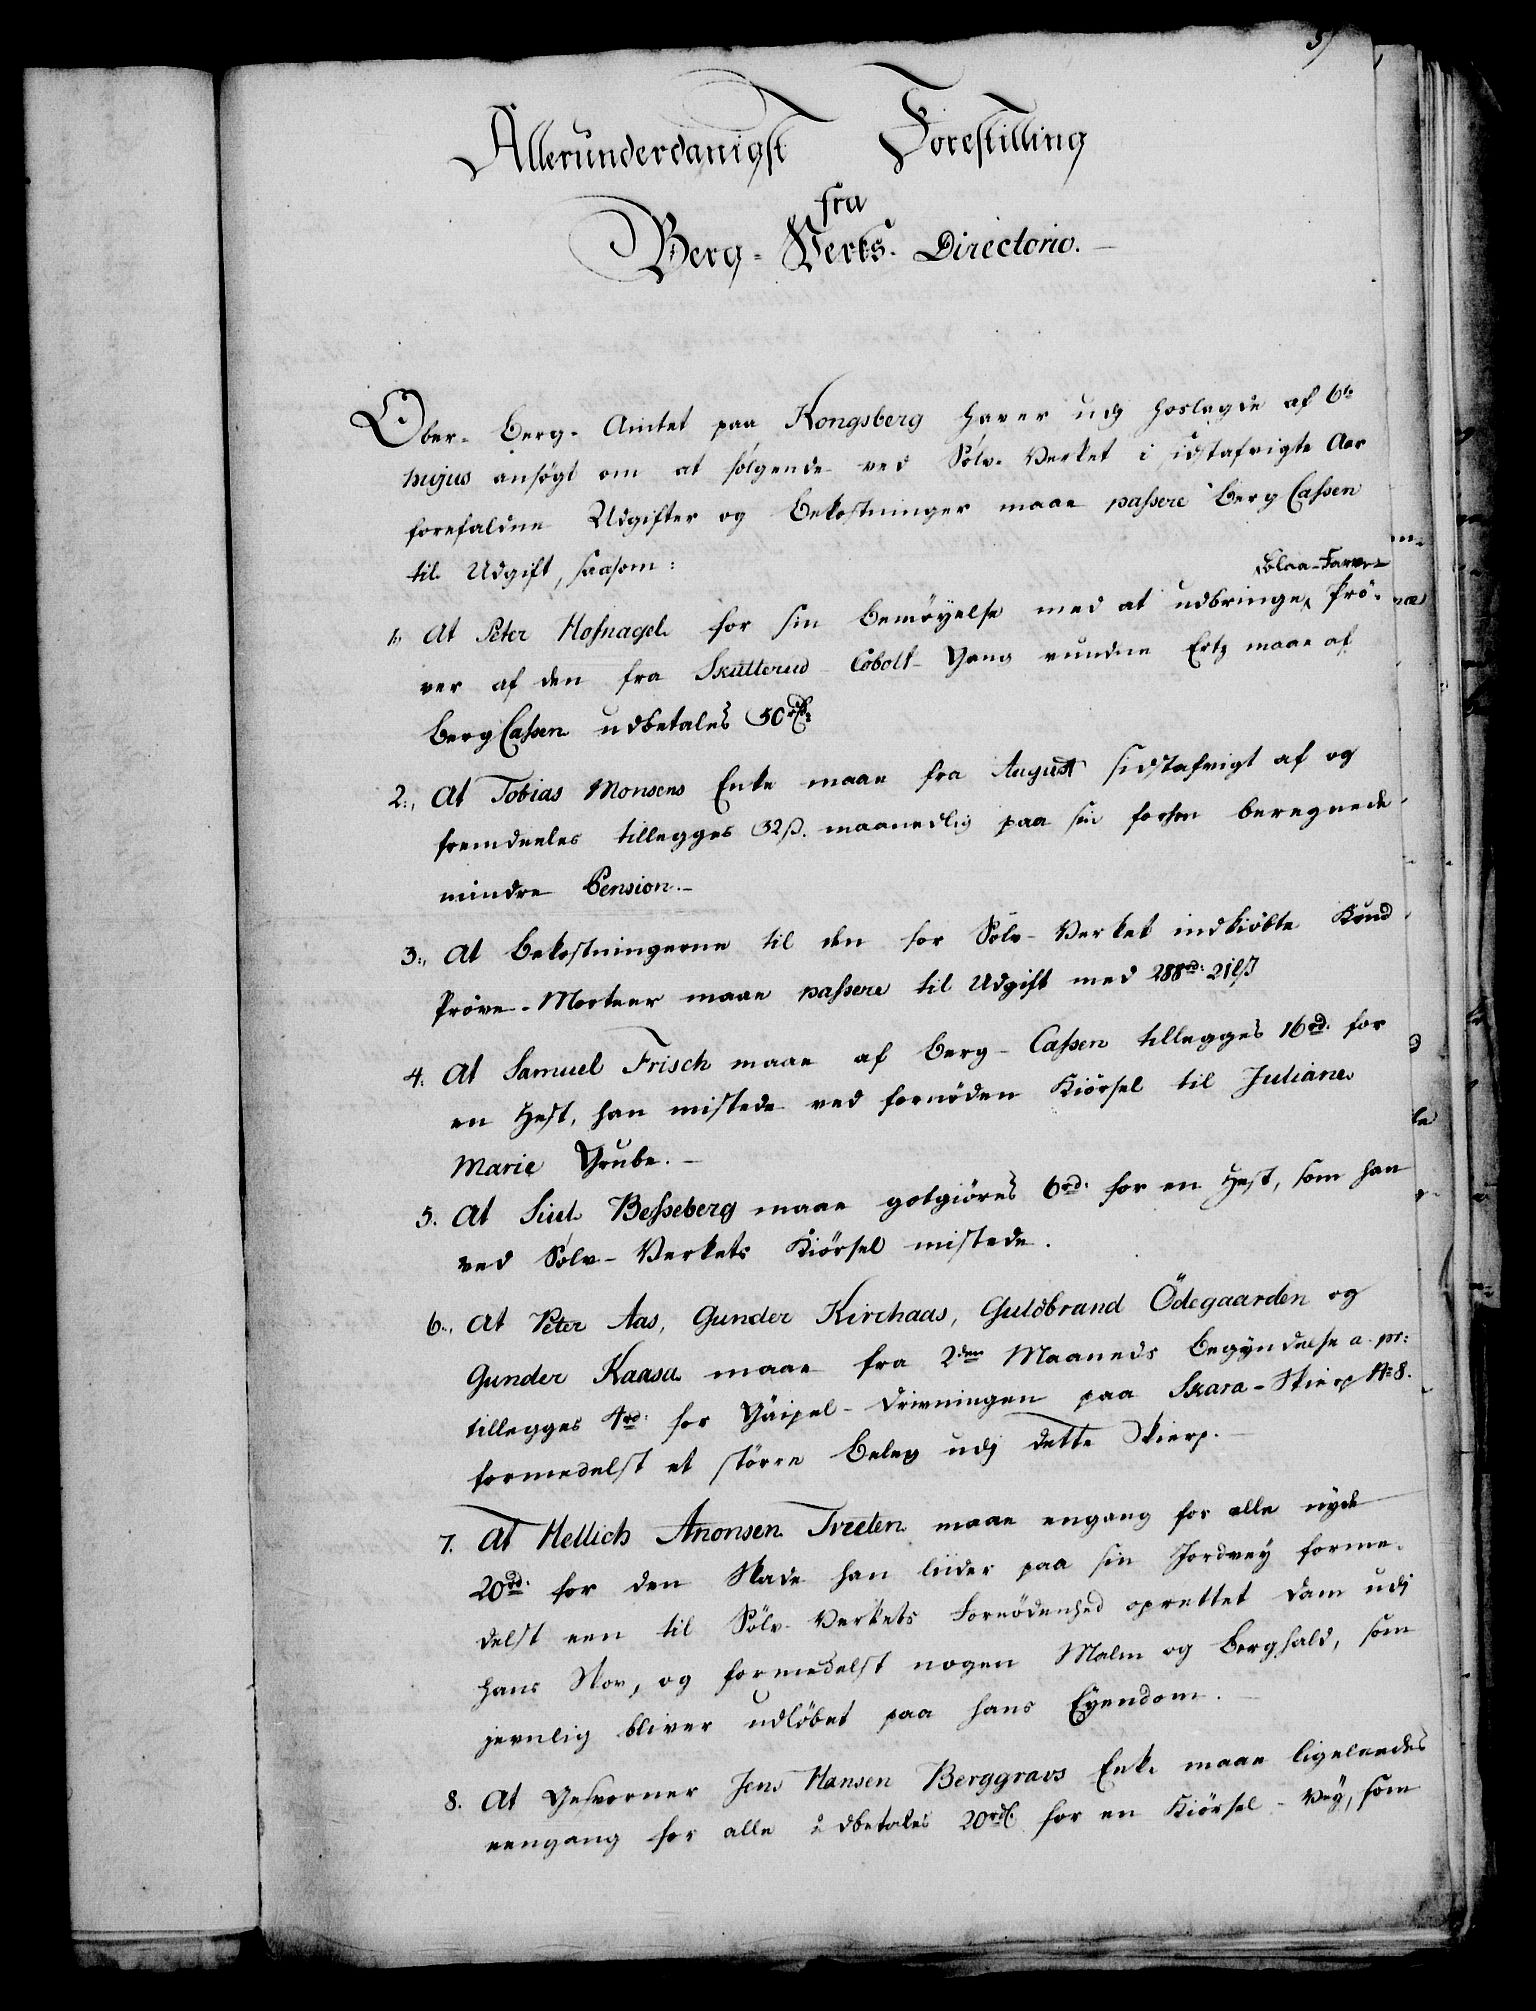 Allerunderdanigst Forestilling
fra
Berg-Verks-Directorio.
Ober-Berg-Amtet paa Kongsberg haver udj hoslagde af 6te
hujus ansögt om at fölgende ved Sölv-Verket i sidstafvigte Aar
forefaldne Udgifter og Bekostninger maae passere Berg Cassen
til Udgift, saasom:
1., At Peter Hofnagel for sin Bemöyelse med at udbringe Blaa-Farve- Prö-
ver af den fra Skutterud Cobolt-Gang vundne Ertz maae af
Berg Cassen udbetales 50 rd.
2., At Tobias Monsens Enke maae fra August sidstafvigt af og
fremdeeles tillegges 32 ß. maanedlig paa sin forhen beregnede
mindre Pension.
3., At Bekostningerne til den for Sölv-Verket indkiöbte Kund
Pröve-Morteer maae passere til Udgift med 288 rd: 21 ß
4. At Samuel Frisch maae af Berg-Cassen tillegges 16 rd. for
en Hest, han mistede ved fornöden Kiörsel til Juliane
Marie Grube.
5. At Siul Besseberg maae gotgiöres 6 rd. for en Hest, som han
ved Sölv-Verkets Kiörsel mistede.
6., At Peter Aas, Gunder Kirchaas, Guldbrand Ödegaarden og
Gunder Kaasa maae fra 2den Maaneds Begyndelse a. pr:
tillegges 4 rd. for Gäipel-Drivningen paa Skara-Skierp No 8.
formedelst et större Beleg udj dette Skierp.
7. At Hellich Anonsen Tveten maae engang for alle nyde
20 rd. for den Skade han lider paa sin Jordvey forme-
delst een til Sölv-Verkets Fornödenhed oprettet Dam udj
hans Skov, og formedelst nogen Malm og Bergfald, som
jevnlig bliver udlöbet paa hans Eyendom.
8. At Gesvorner Jens Hansen Berggravs Enke maae ligeleedes
eengang for alle udbetales 20 rd. for en Kiörsel-Vey, som